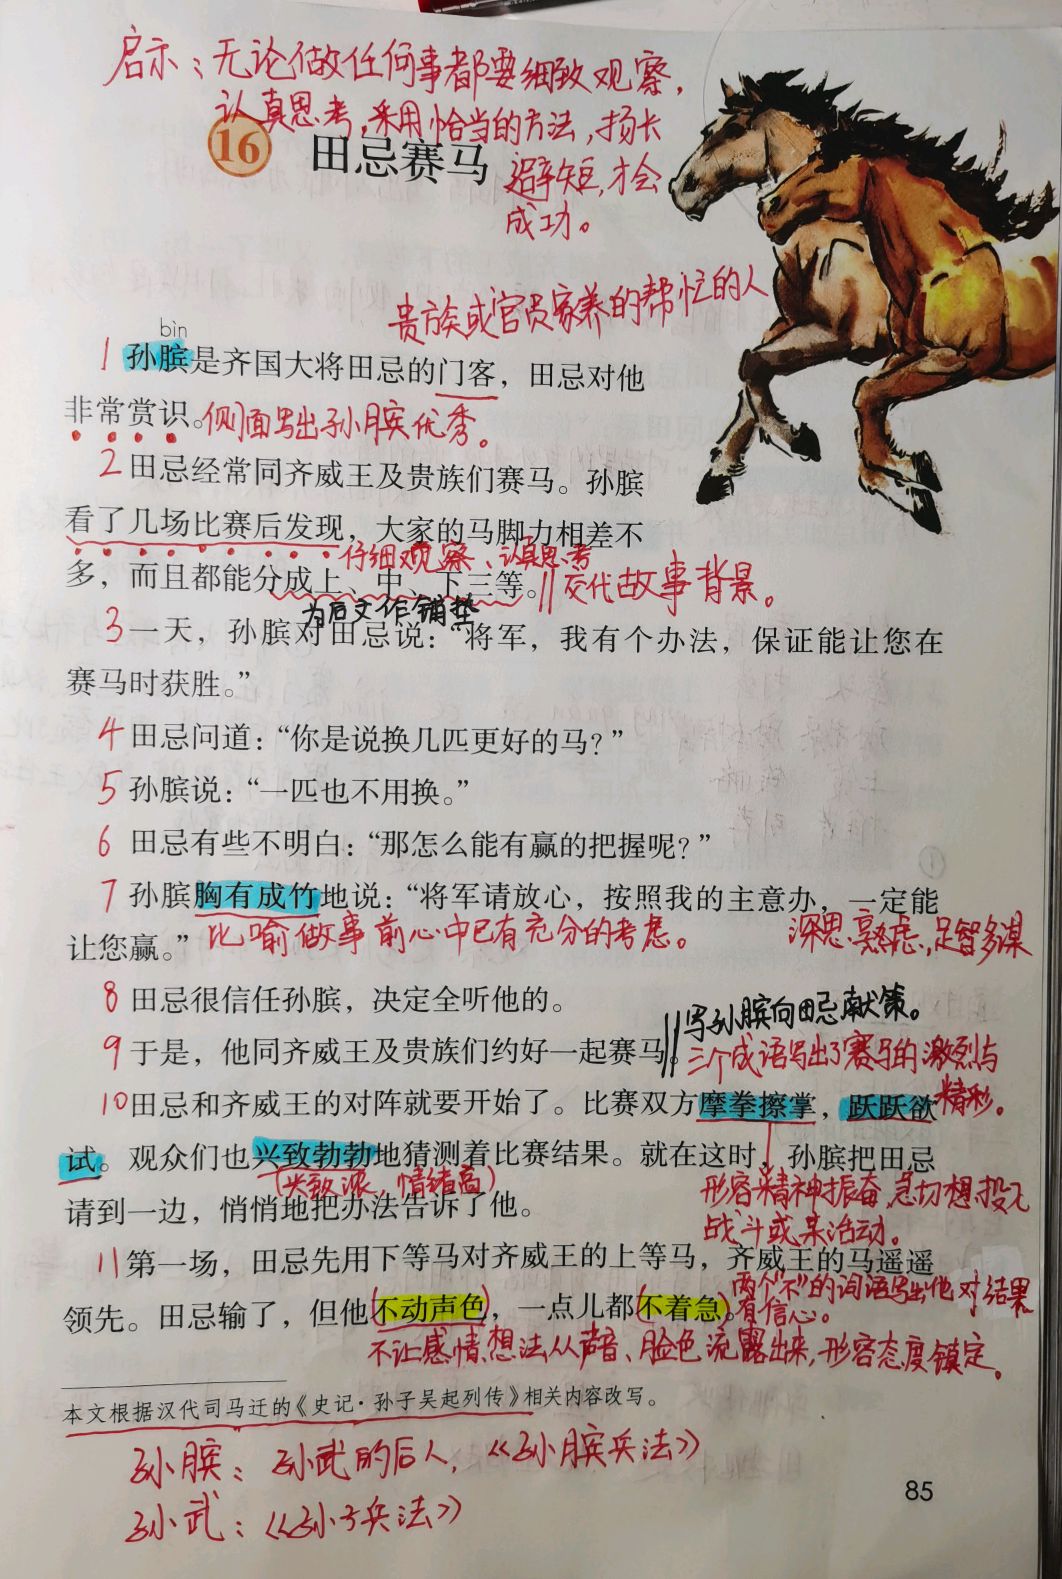 启示：无论做任何事都要细致观察，
认真思考，采用恰当的方法，扬长
避短，才会
成功。
16 田忌赛马
贵族或官员家养的帮忙的人
bìn
1 孙膑是齐国大将田忌的门客，田忌对他
非常赏识。侧面写出孙膑优秀。
2 田忌经常同齐威王及贵族们赛马。孙膑
看了几场比赛后发现，大家的马脚力相差不
仔细观察、认真思考
多，而且都能分成上、中、下三等。‖交代故事背景。
为后文作铺垫
3 一天，孙膑对田忌说：“将军，我有个办法，保证能让您在
赛马时获胜。”
4 田忌问道：“你是说换几匹更好的马？”
5 孙膑说：“一匹也不用换。”
6 田忌有些不明白：“那怎么能有赢的把握呢？”
7 孙膑胸有成竹地说：“将军请放心，按照我的主意办，一定能
让您赢。”比喻做事前心中已有充分的考虑。 深思熟虑，足智多谋
8 田忌很信任孙膑，决定全听他的。
‖写孙膑向田忌献策。
9 于是，他同齐威王及贵族们约好一起赛马。
三个成语写出了赛马的激烈与
精彩。
10 田忌和齐威王的对阵就要开始了。比赛双方摩拳擦掌，跃跃欲
试。观众们也兴致勃勃地猜测着比赛结果。就在这时，孙膑把田忌
（兴致浓，情绪高）
请到一边，悄悄地把办法告诉了他。
形容精神振奋，急切想投入
战斗或某活动。
11 第一场，田忌先用下等马对齐威王的上等马，齐威王的马遥遥
领先。田忌输了，但他（不动声色），一点儿都（不着急）。
两个“不”的词语写出他对结果
有信心。
不让感情、想法从声音、脸色流露出来，形容态度镇定。
本文根据汉代司马迁的《史记·孙子吴起列传》相关内容改写。
孙膑：孙武的后人，《孙膑兵法》
孙武：《孙子兵法》
85